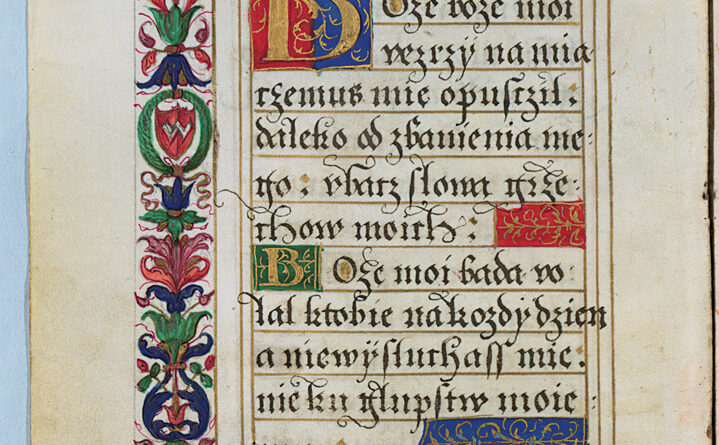 Boze boze moi
wezrzy na mia
czemus mie opuscził :
daleko od zbawienia me-
go : vbacz słowa grze-
chow moich :
Boze moi bada wo-
lal ktobie nakozdy dzien
a niewysluchass mie :
nie ku glupstw moie